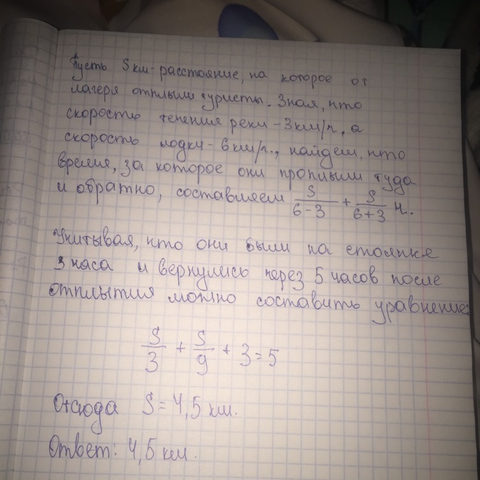 Пусть S км - расстояние, на которое от
лагеря отплыли туристы. Зная, что
скорость течения реки - 3км/ч, а
скорость лодки - 6 км/ч., найдём, что
время, за которое они проплыли туда
и обратно, составляем S/(6-3) + S/(6+3) ч.
Учитывая, что они были на стоянке
3 часа и вернулись через 5 часов после
отплытия можно составить уравнение:
S/3 + S/9 + 3 = 5
Отсюда S = 4,5 км.
Ответ: 4,5 км.